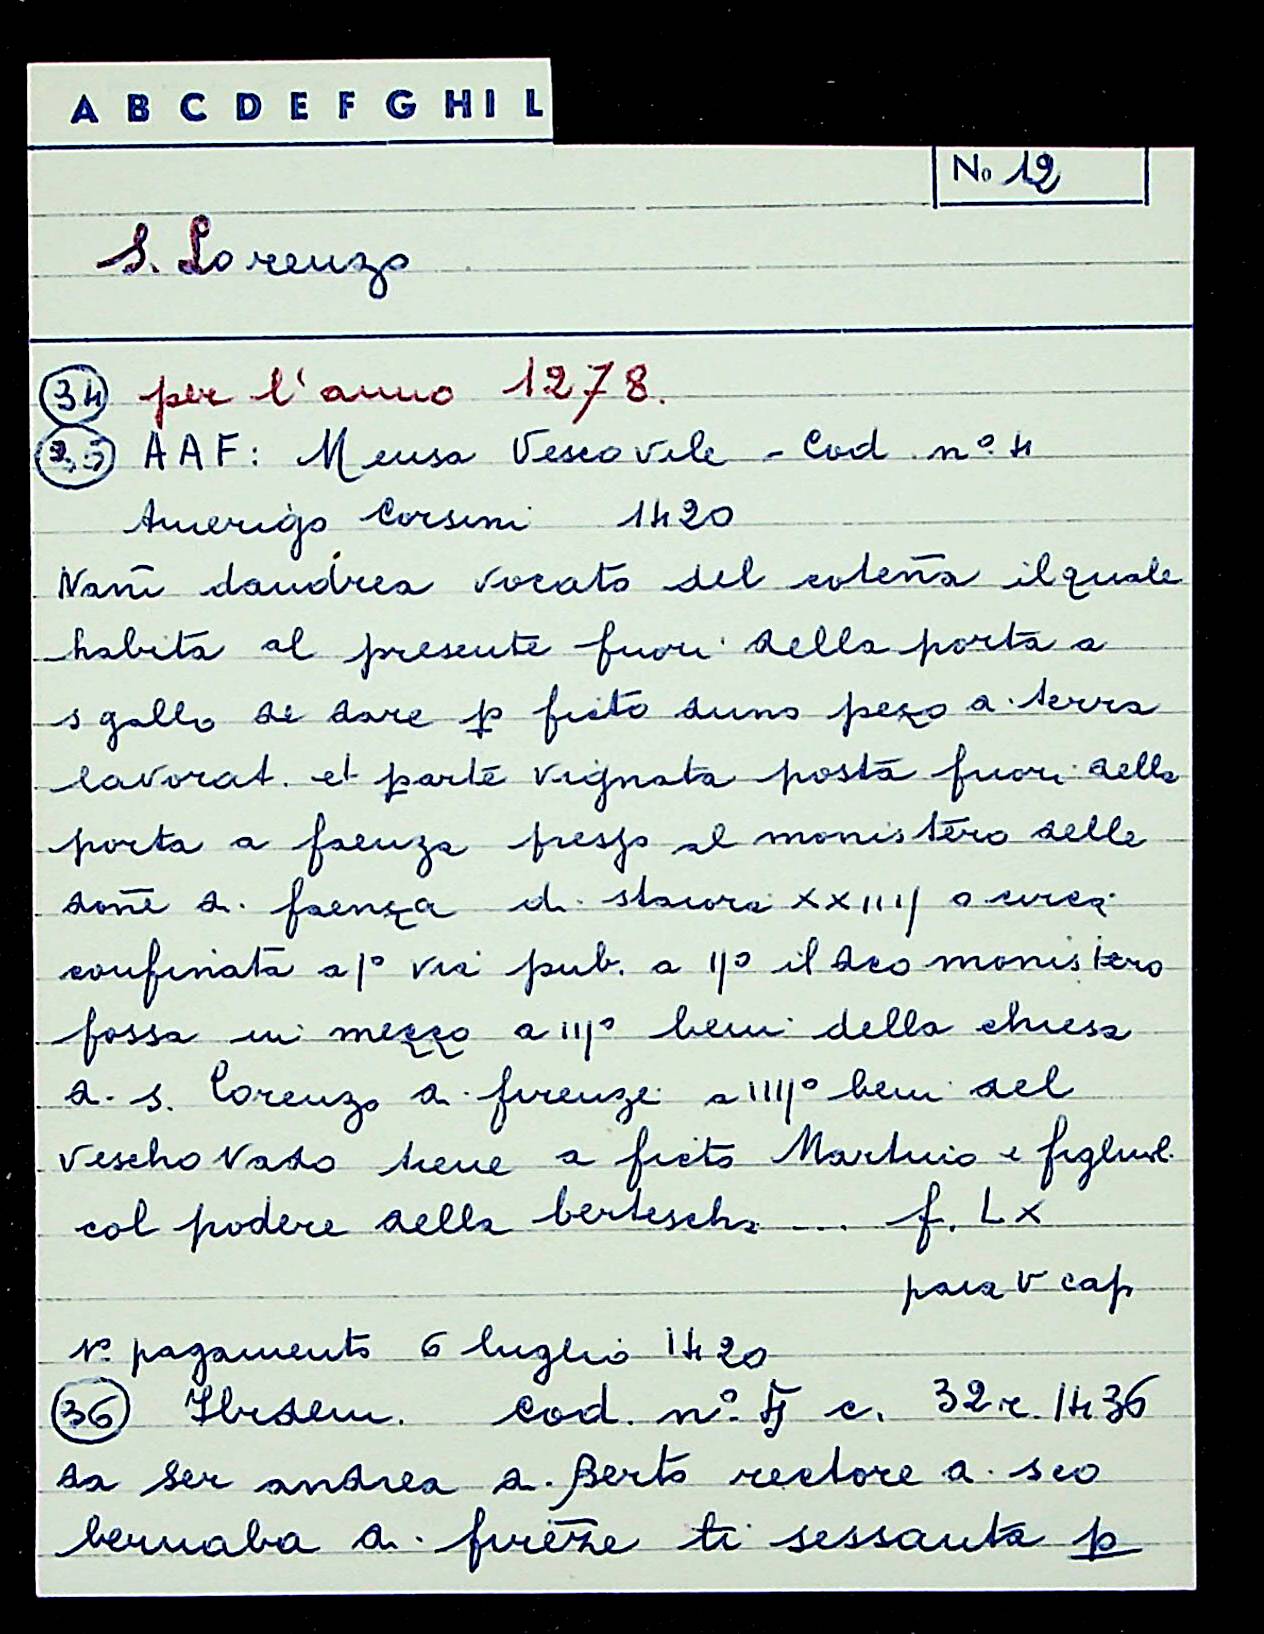 A B C D E F G H I L
No 12
S. Lorenzo
34 per l'anno 1278.
35 AAF: Mensa Vescovile - Cod. n° 4
Amerigo Corsini 1420
Nañi dandrea vocato del coteña ilquale
habita al presente fuori della porta a
s gallo de dare p ficto duno pezo di terra
lavorat. et parte vignata posta fuori della
porta a faenza presso al monistero delle
doñe di faenza di staiora XXIIIJ o circa
confinata a J° via pub. a IJ° il dco monistero
fossa in mezzo a IIJ° beni della chiesa
di s. Lorenzo di firenze a IIIJ° beni del
veschovado tiene a ficto Martino e figluol.
col podere della bertescha ... f. LX
paia V cap
N° pagamento 6 luglio 1420
36 Ibidem. Cod. n° 5 c. 32 r. 1436
da Ser andrea di Berto rectore di sco
bernaba di fireze li sessanta p